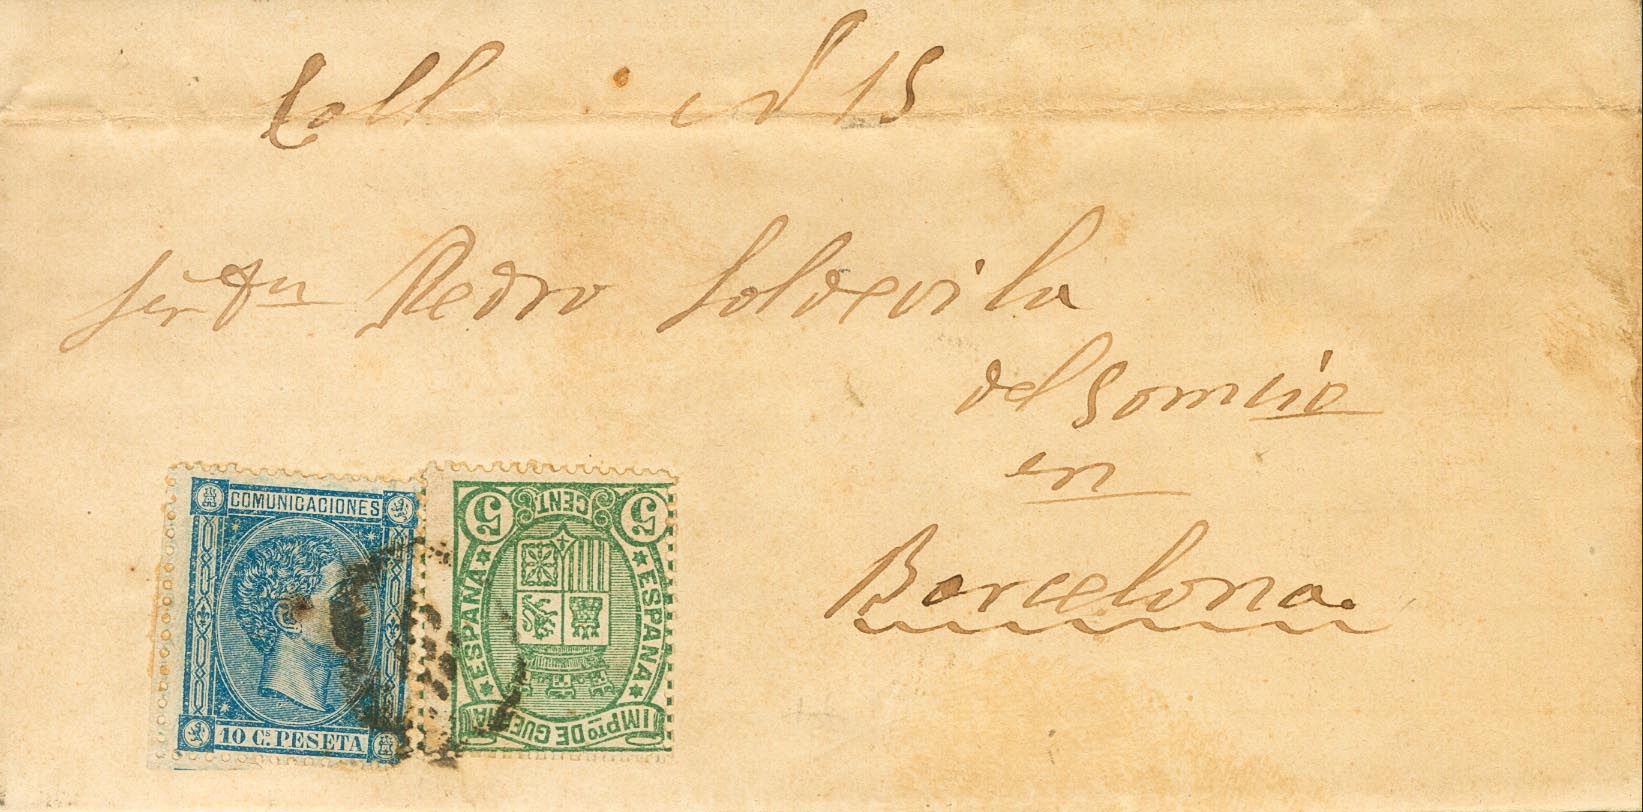 Coll
15
Señr Dn Pedro Soldevila
del Comercio
en
Barcelona.
COMUNICACIONES
10 Cs. PESETA
5 CENT 5
ESPAÑA
ESPAÑA
IMPto DE GUERRA